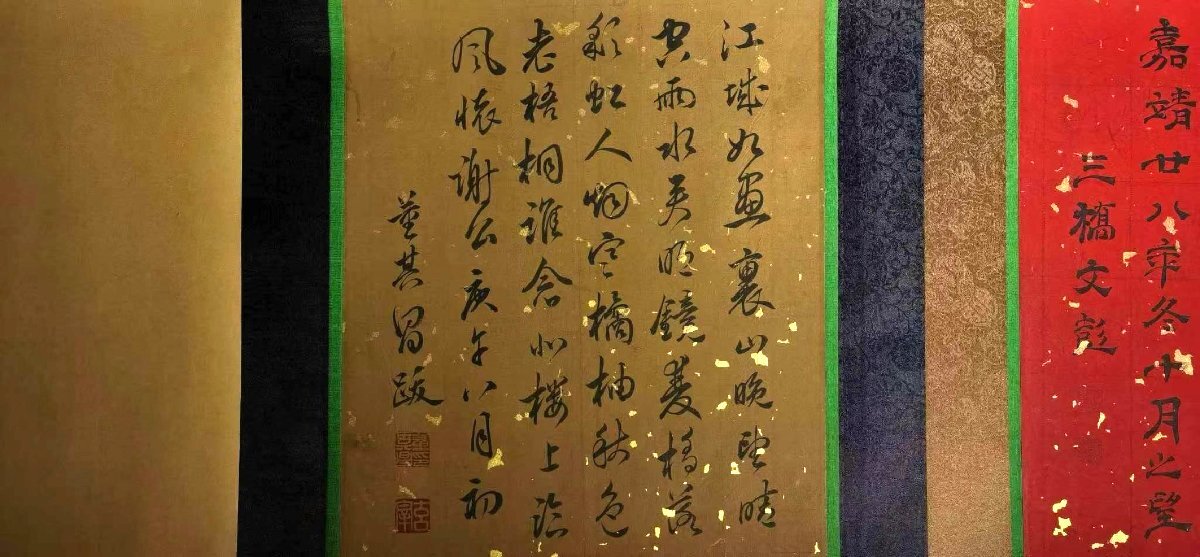 嘉靖廿八年冬十月之望
三橋文彭
江城如畫裏山晚望晴
空雨水夾明鏡雙橋落
彩虹人烟寒橘柚秋色
老梧桐誰念北樓上臨
風懷謝公庚午八月初
董其昌跋